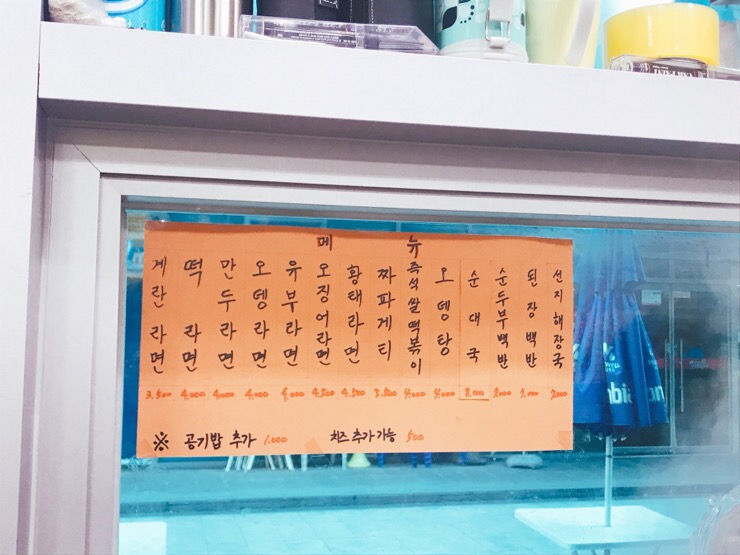 메 뉴
계란 라면 3.500
떡 라면 4.000
만두라면 4.000
오뎅라면 4.000
유부라면 4.000
오징어라면 4.500
황태라면 4.500
짜파게티 3.500
즉석쌀떡볶이 4.000
오뎅탕 4.000
순대국 8.000
순두부백반
된장백반
선지해장국
※ 공기밥 추가 1.000
치즈 추가 가능 500